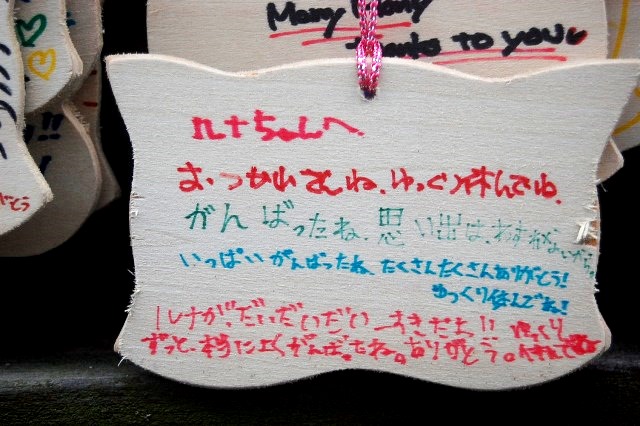 Many Many
thanks to you
ルナちゃんへ
お・つかれさんね、ゆっくり休んでね、
がんばったね、思い出は、わすれないから。
いっぱいがんばったね、たくさんたくさんありがとう!
ゆっくり休んでね!
ルナが、だいだいだいすきだよ!! ゆっくり
ずっと、本当によくがんばったね。ありがとう。